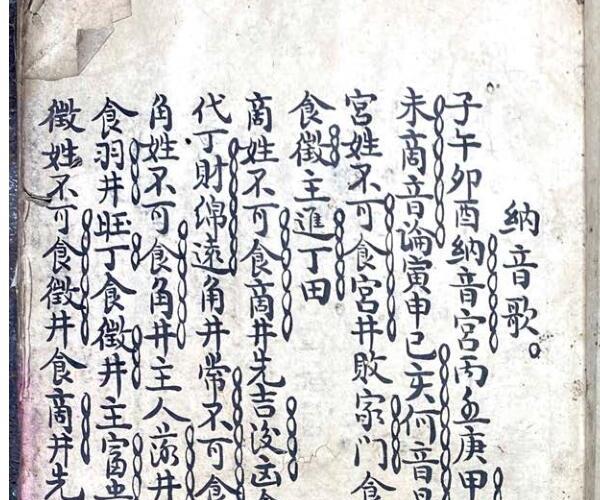 納音歌
子午卯酉納音宮丙壬庚甲
未商音論寅申巳亥何音是
宮姓不可食宮井敗家門食
食徵主進丁田
商姓不可食商井先吉後凶
代丁財綿遠角井常不可食
角姓不可食角井主人 井
食羽井旺丁食徵井主富貴
徵姓不可食徵井食商井先